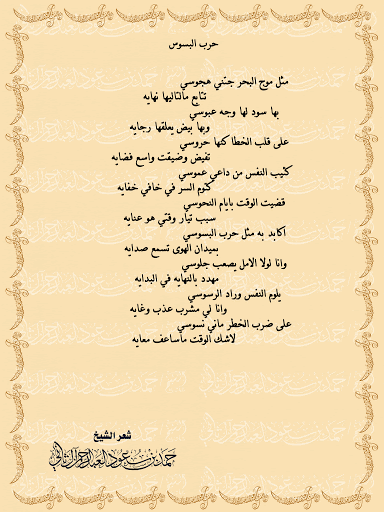 حرب البسوس
مثل موج البحر جتني هجوسي
تتابع مالتاليها نهايه
بها سود لها وجه عبوسي
وبها بيض يعلقها رجايه
على قلب الخطا كنها حروسي
تفيض وضيقت واسع فضايه
كئيب النفس من داعي عموسي
كتوم السر في خافي خفايه
قضيت الوقت بايام النحوسي
سبب تيار وقتي هو عنايه
اكابد به مثل حرب البسوسي
بميدان الهوى تسمع صدايه
وانا لولا الامل يصعب جلوسي
مهدد بالنهايه في البدايه
يلوم النفس وراد الرسوسي
وانا لي مشرب عذب وغايه
على ضرب الخطر ماني نسوسي
لاشك الوقت ماساعف معايه
شعر الشيخ
حمد بن سعود العبدالرحمن ال ثاني